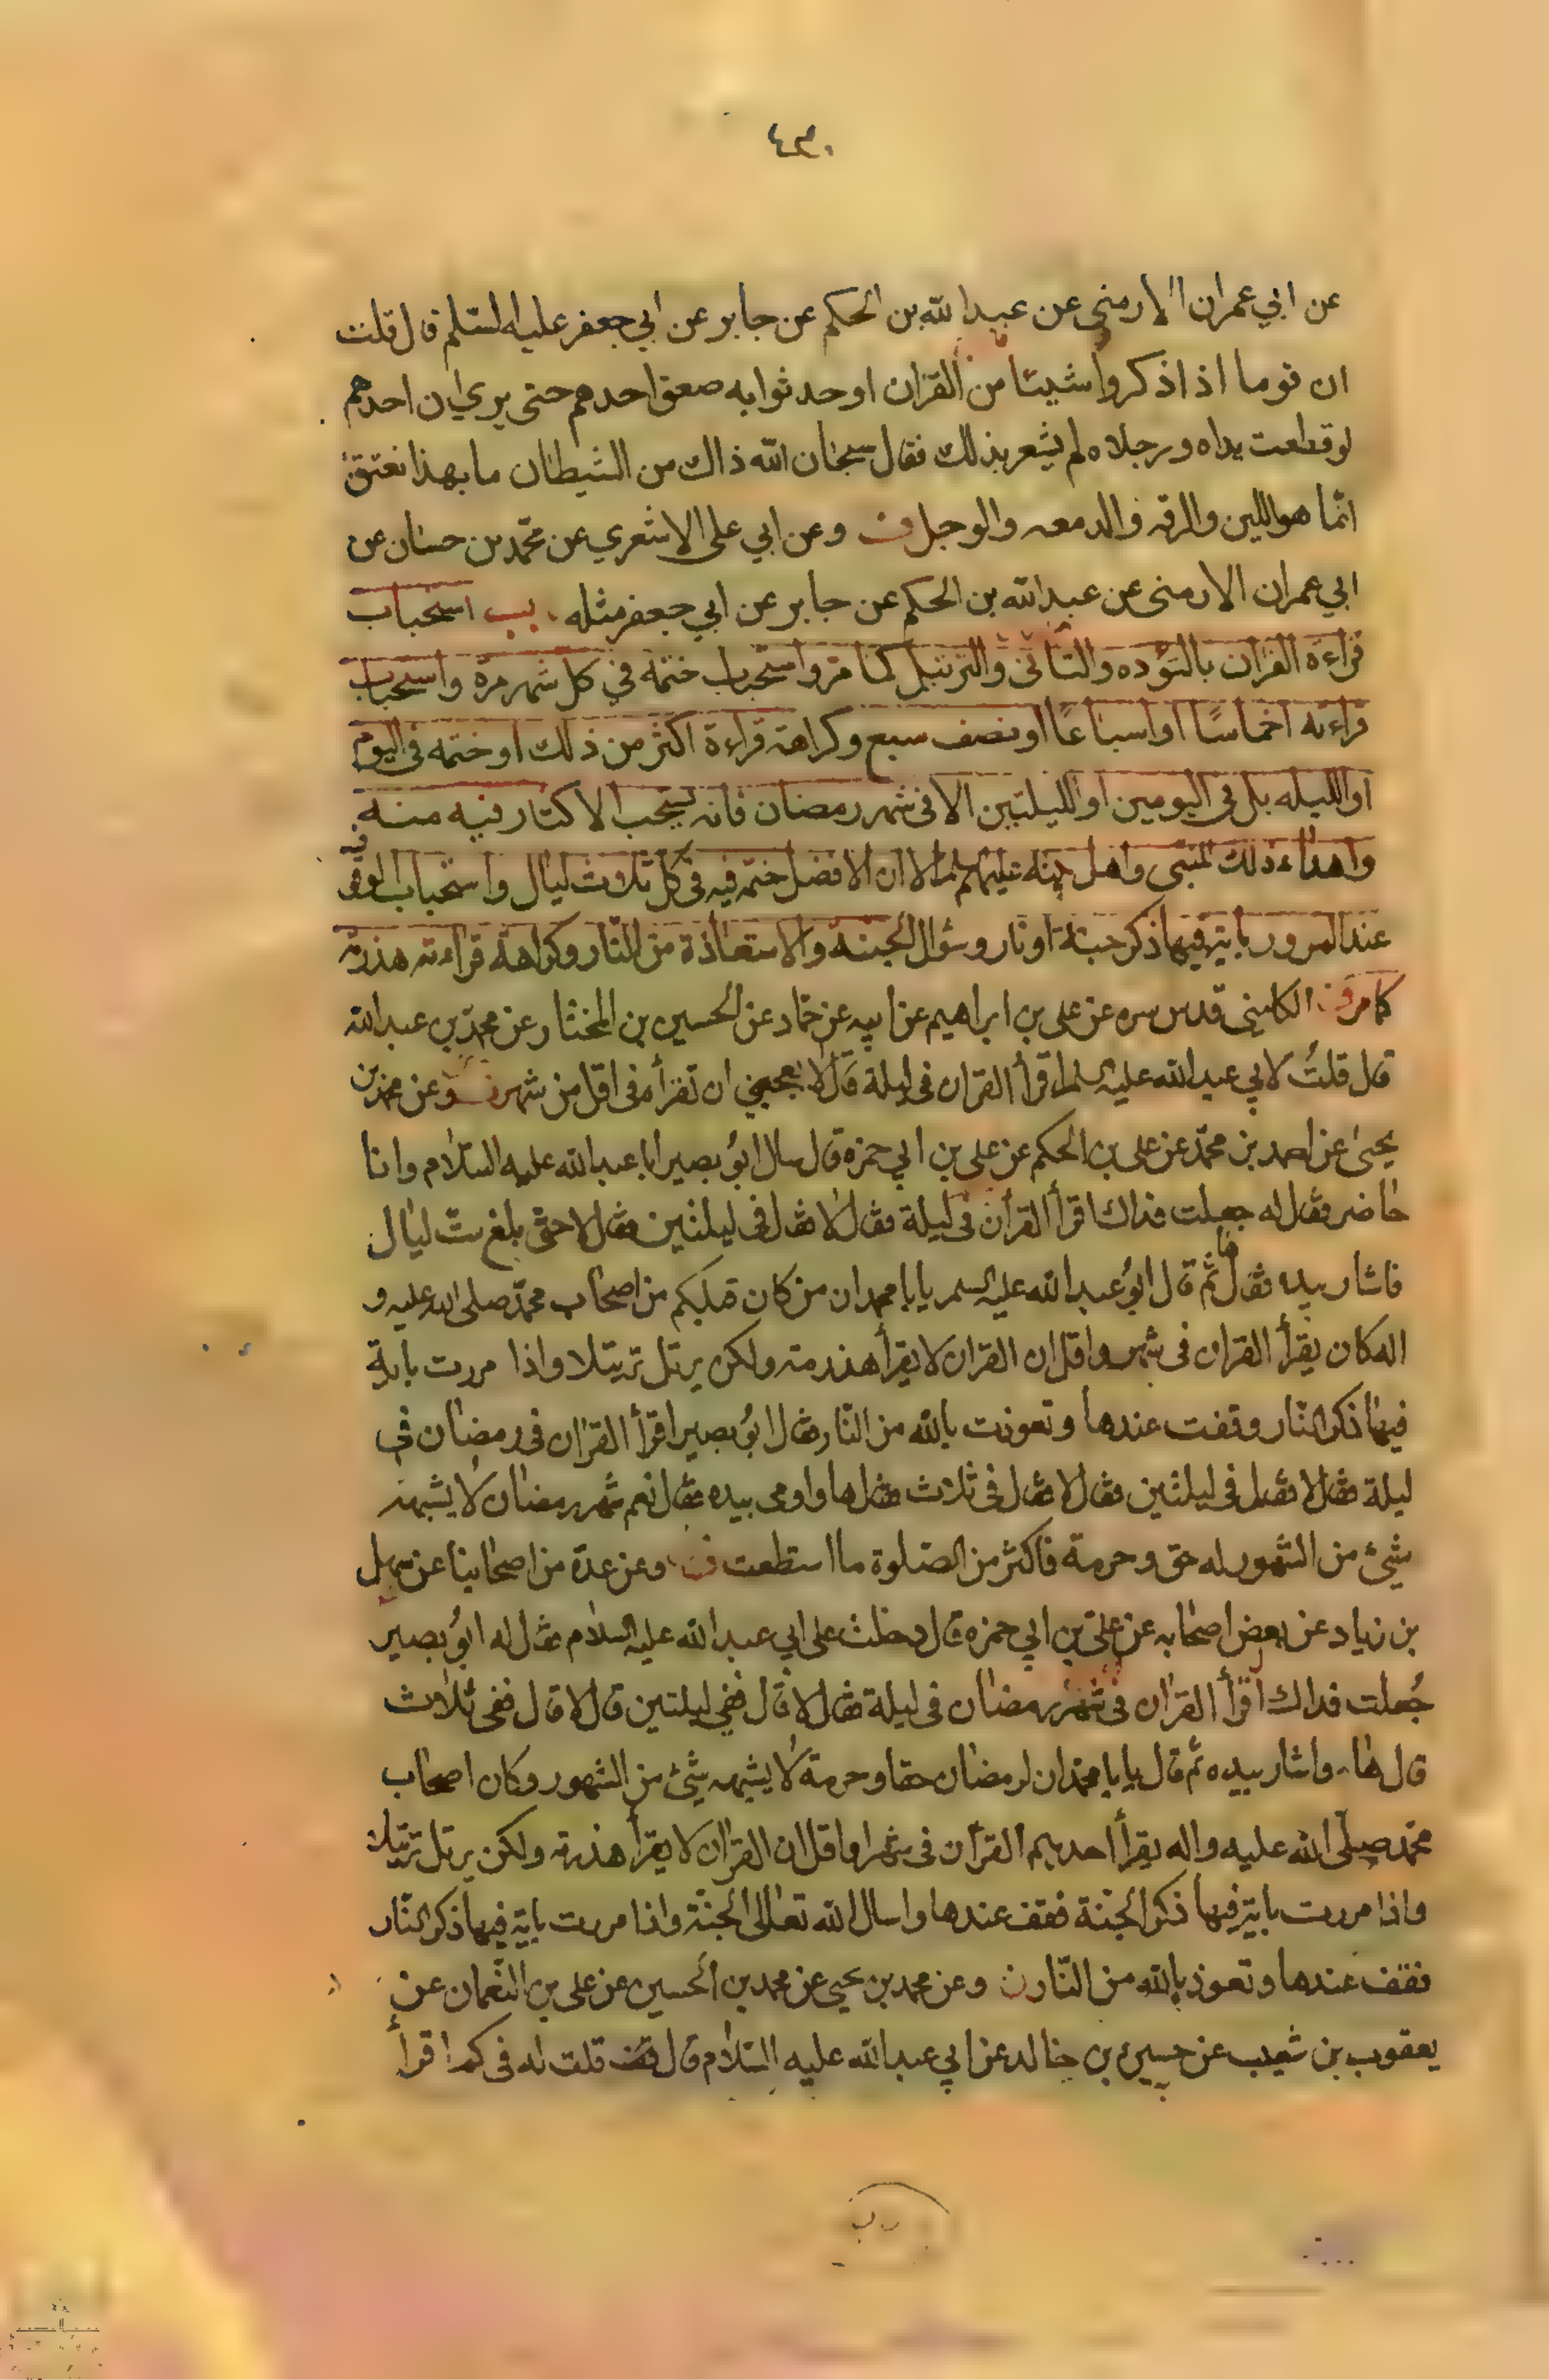 ٤٣٠
عن ابي عمران الارمنى عن عبدالله بن الحكم عن جابر عن ابي جعفر عليه السلم قال قلت
ان قوما اذا ذكروا شيئا من القران او حدثوا به صعق احدهم حتى يري ان احدهم
لو قطعت يداه ورجلاه لم يشعر بذلك فقال سبحان الله ذاك من الشيطان ما بهذا نعتوا
انما هو اللين والرقه والدمعه والوجل ف وعن ابي على الاشعري عن محمد بن حسان عن
ابي عمران الارمنى عن عبدالله بن الحكم عن جابر عن ابي جعفر مثله بب استحباب
قراءة القران بالتؤده والتانى والترتيل كما مر واستحباب ختمه في كل شهر مرة واستحباب
قراءته اخماسًا او اسباعًا او نصف سبع وكراهة قراءة اكثر من ذلك او ختمه فى اليوم
او الليله بل فى اليومين او الليلتين الا فى شهر رمضان فانه يستحب الاكثار فيه منه
واهداء ذلك للنبى واهل بيته عليهم الا ان الافضل ختمه فيه فى كل ثلاث ليال واستحباب الوقوف
عند المرور باية فيها ذكر جنة او نار وسؤال الجنة والاستعاذة من النار وكراهة قراءته هذرمة
كما مر ف الكلينى قدس سره عن على بن ابراهيم عن ابيه عن حماد عن الحسين بن المختار عن محمد بن عبدالله
قال قلتُ لابي عبدالله عليه السلم اقرأ القران فى ليلة قال لا يعجبنى ان تقرأه فى اقل من شهر ف وعن محمد بن
يحيى عن احمد بن محمد عن على بن الحكم عن على بن ابي حمزه قال سال ابو بصير ابا عبدالله عليه السلام وانا
حاضر فقال له جعلت فداك اقرأ القرآن فى ليلة فقال لا فقال فى ليلتين فقال لا حتى بلغ ست ليال
فاشار بيده فقال ها ثم قال ابو عبدالله عليه السلم يا با محمد ان من كان قبلكم من اصحاب محمد صلى الله عليه و
اله كان يقرأ القران فى شهر واقل ان القران لا يقرأ هذرمة ولكن يرتل ترتيلا واذا مررت باية
فيها ذكر النار وقفت عندها وتعوذت بالله من النار فقال ابو بصير اقرأ القران فى رمضان فى
ليلة فقال لا فقال فى ليلتين فقال لا فقال فى ثلاث فقال ها واومى بيده فقال نعم شهر رمضان لا يشبهه
شئ من الشهور له حق وحرمة فاكثر من الصلوة ما استطعت ف وعن عدة من اصحابنا عن سهل
بن زياد عن بعض اصحابه عن على بن ابي حمزه قال دخلت على ابي عبدالله عليه السلام فقال له ابو بصير
جُعلت فداك اقرأ القران فى شهر رمضان فى ليلة فقال لا قال ففى ليلتين قال لا قال ففى ثلاث
قال ها واشار بيده ثم قال يا با محمد ان لرمضان حقا وحرمة لا يشبهه شئ من الشهور وكان اصحاب
محمد صلى الله عليه واله يقرأ احدهم القرآن فى شهر او اقل ان القران لا يقرأ هذرمة ولكن يرتل ترتيلا
واذا مررت باية فيها ذكر الجنة فقف عندها واسال الله تعالى الجنة واذا مررت باية فيها ذكر النار
فقف عندها وتعوذ بالله من النار ن وعن محمد بن يحيى عن محمد بن الحسين عن على بن النعمان عن
يعقوب بن شعيب عن حسين بن خالد عن ابي عبدالله عليه السلام قال قلت له فى كم اقرأ